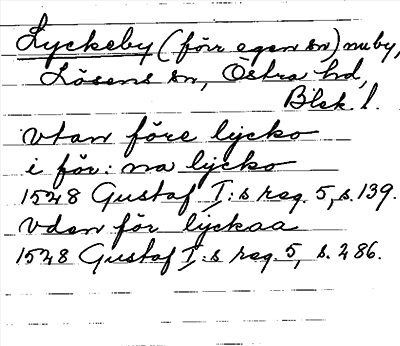 Lyckeby (förr egen sn) nuby,
Lösens sn, Östra hd,
Blek l.
vtan före lycko
i för: na lycko
1528 Gustaf I:s reg. 5, s. 139.
vdan för lyckaa
1528 Gustaf I:s reg. 5, s. 286.